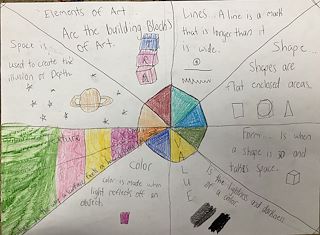 Elements of Art
Are the building Blocks
of Art.
Lines. A line is a mark
that is longer than it
is wide.
Shape
Shapes are
flat enclosed areas.
Form... is when
a shape is 3D and
takes space.
VALUE
Is the lightness and darkness
of a color.
Color
color is made when
light reflects off an
objects
Space is
used to create the
illusion of Depth.